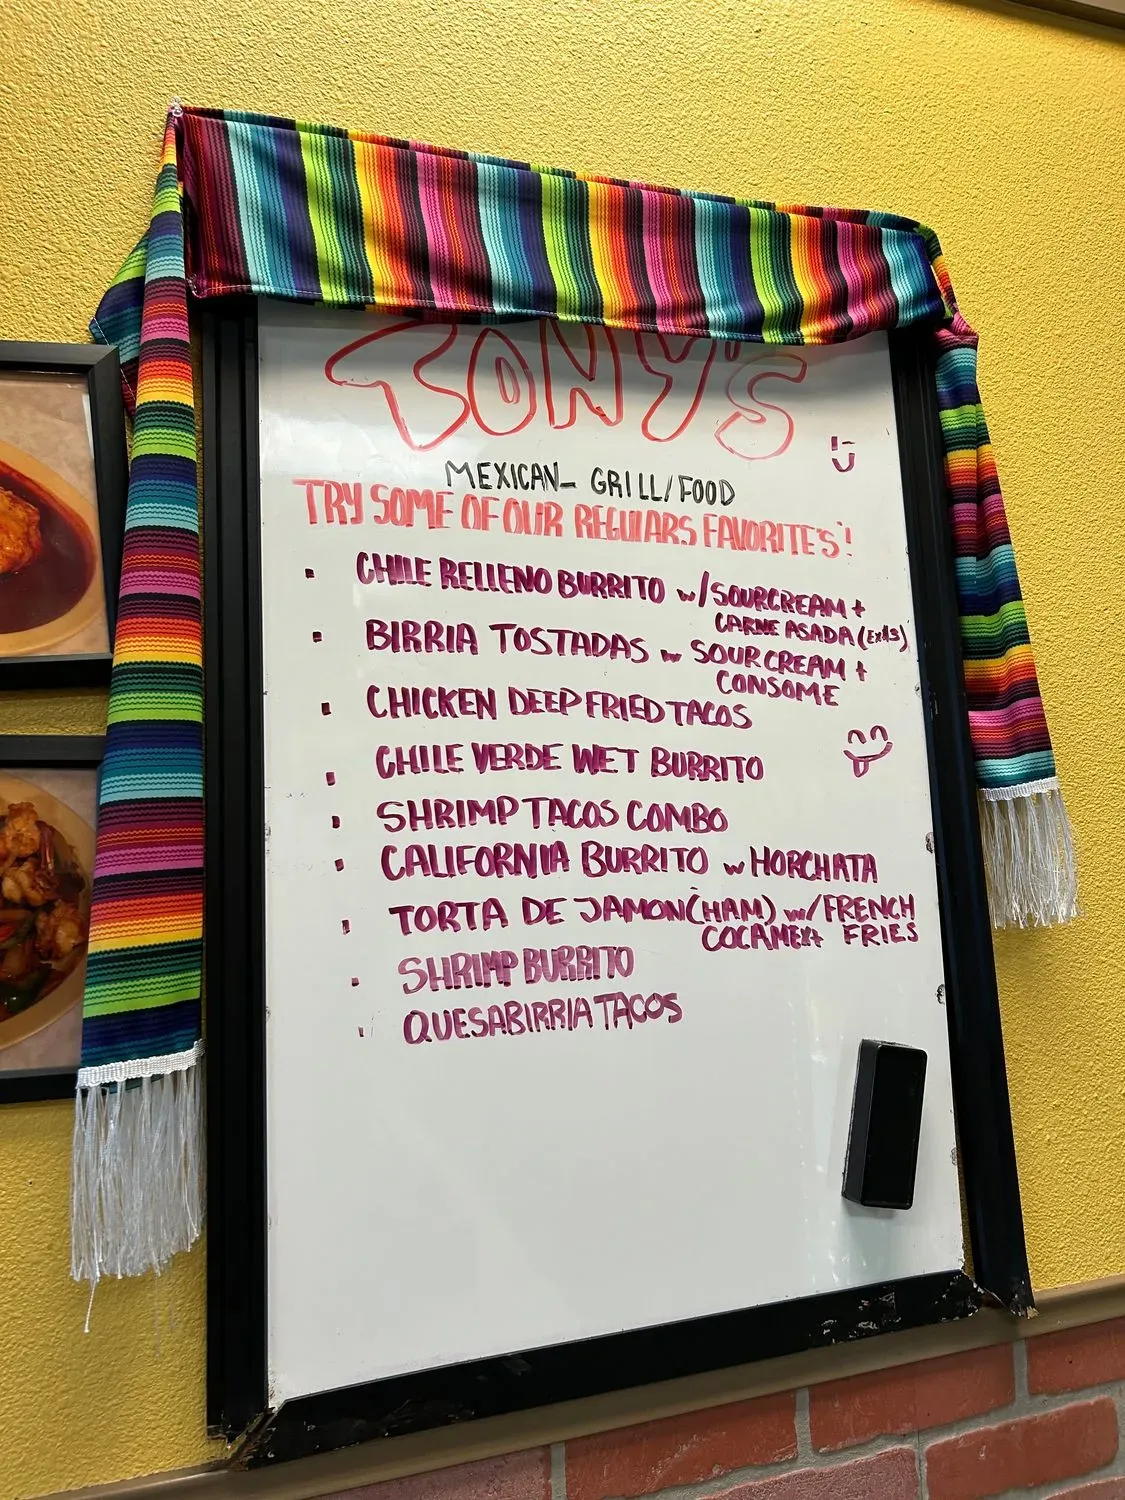 TONY'S
MEXICAN- GRILL/FOOD
TRY SOME OF OUR REGULARS FAVORITE'S!
CHILE RELLENO BURRITO w/SOURCREAM +
CARNE ASADA
BIRRIA TOSTADAS w SOURCREAM +
CONSOME
CHICKEN DEEP FRIED TACOS
CHILE VERDE WET BURRITO
SHRIMP TACOS COMBO
CALIFORNIA BURRITO w HORCHATA
TORTA DE JAMON(HAM) w/FRENCH
FRIES
SHRIMP BURRITO
QUESABIRRIA TACOS